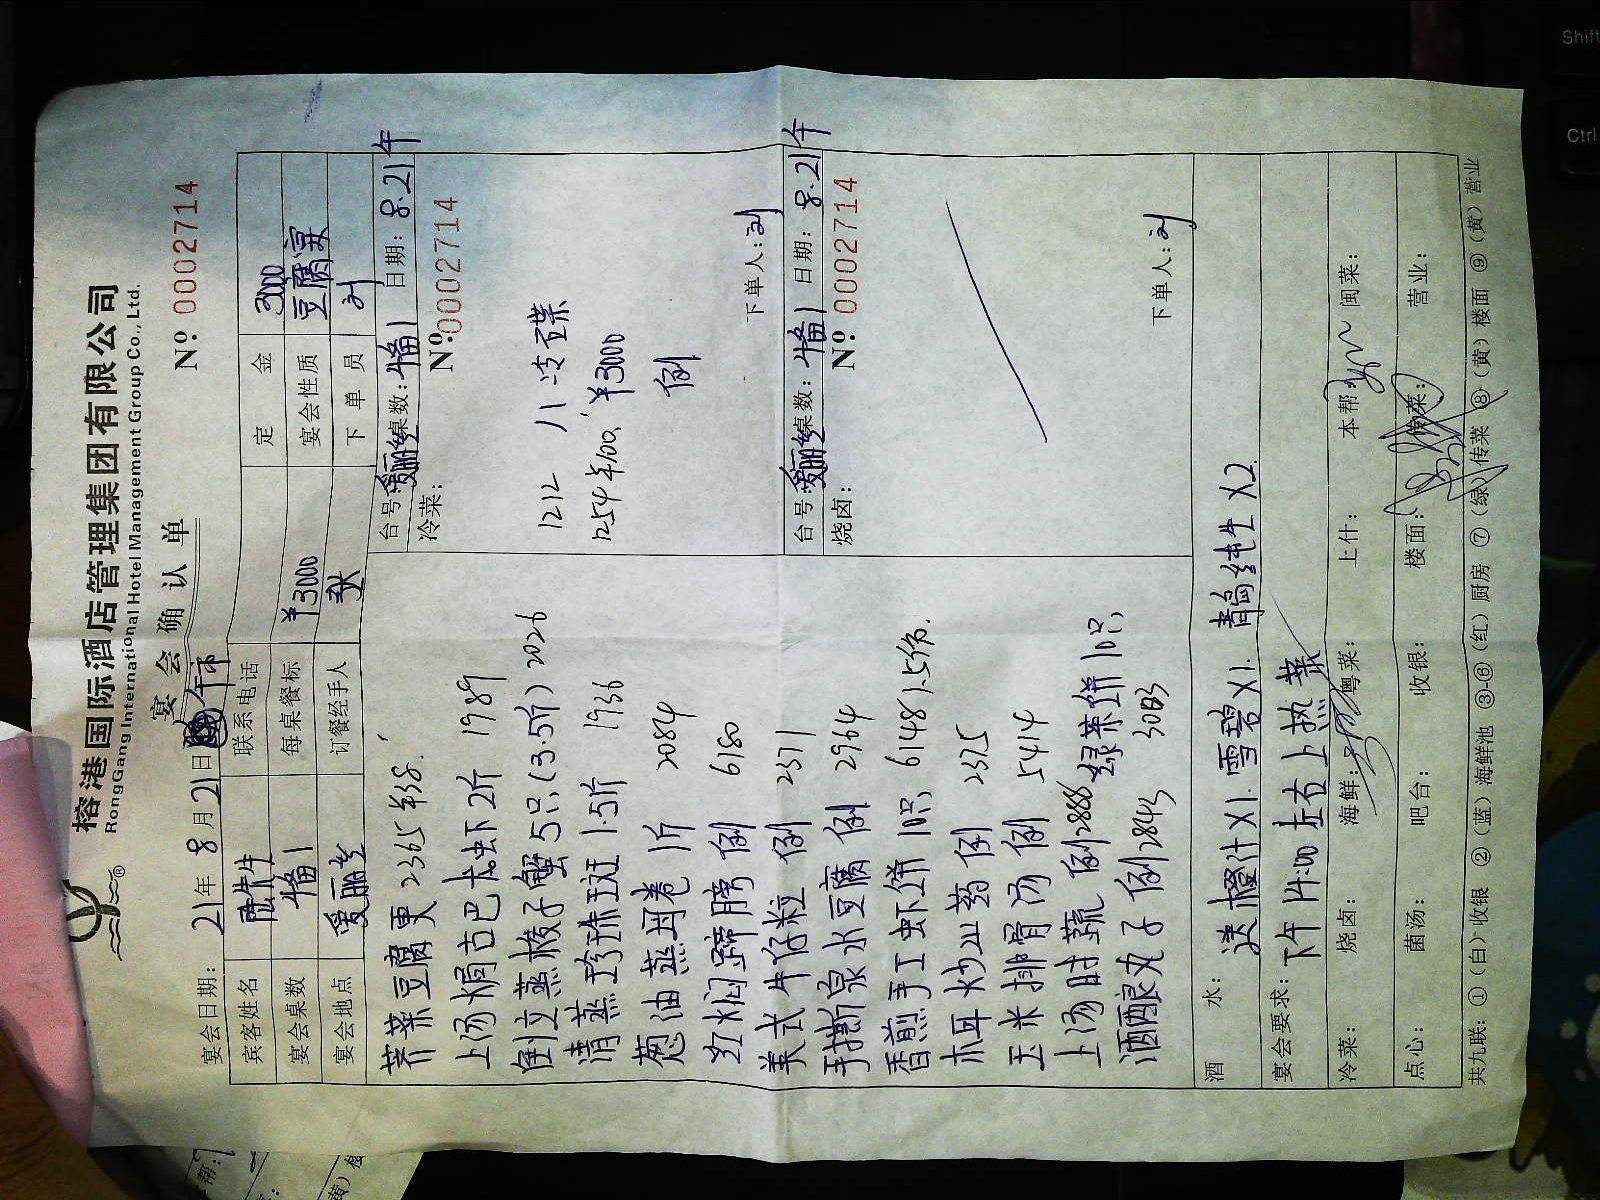 榕港国际酒店管理集团有限公司
RongGang International Hotel Management Group Co., Ltd.
宴会确认单
宴会日期: 21年 8月 21日 午市
Nº 0002714
宾客姓名 陆先生 联系电话 定金 3000
宴会桌数 1 每桌餐标 ¥3000 宴会性质 豆腐宴
宴会地点 爱丽丝 订餐经手人 张 下单员 刘
荠菜豆腐更 2365 半38.
上汤焗古巴大虫下2斤 1989
倒立蒸梭子蟹5只(3.5斤) 2026
清蒸珍珠斑 1.5斤 1936
葱油蒸 卷 1斤 2084
红焖蹄膀 例 6180
美式牛仔粒 例 2371
手撕泉水豆腐 例 2964
香煎手工虾饼 10只 6148 1.5份.
木耳炒山药 例 2375
玉米排骨汤 例 5414
上汤时蔬 例 2886 绿茶饼10只
酒酿丸子 例 2843 30日3
台号: 爱丽丝 桌数: 1 日期: 8.21午
冷菜:
Nº 0002714
1212 八冷碟
1254 半100, ¥3000
例
下单人: 刘
台号: 爱丽丝 桌数: 1 日期: 8.21午
烧卤:
Nº 0002714
下单人: 刘
酒水: 送橙汁X1. 雪碧X1. 青岛纯生X2.
宴会要求: 下午 左右上热菜
冷菜: 烧卤: 海鲜: 粤菜: 上什: 本帮: 闽菜:
点心: 菌汤: 吧台: 收银: 楼面: 传菜: 营业:
共九联: ①(白)收银 ②(蓝)海鲜池 ③-⑥(红)厨房 ⑦(绿)传菜 ⑧(黄)楼面 ⑨(黄)营业
Shift
Ctrl